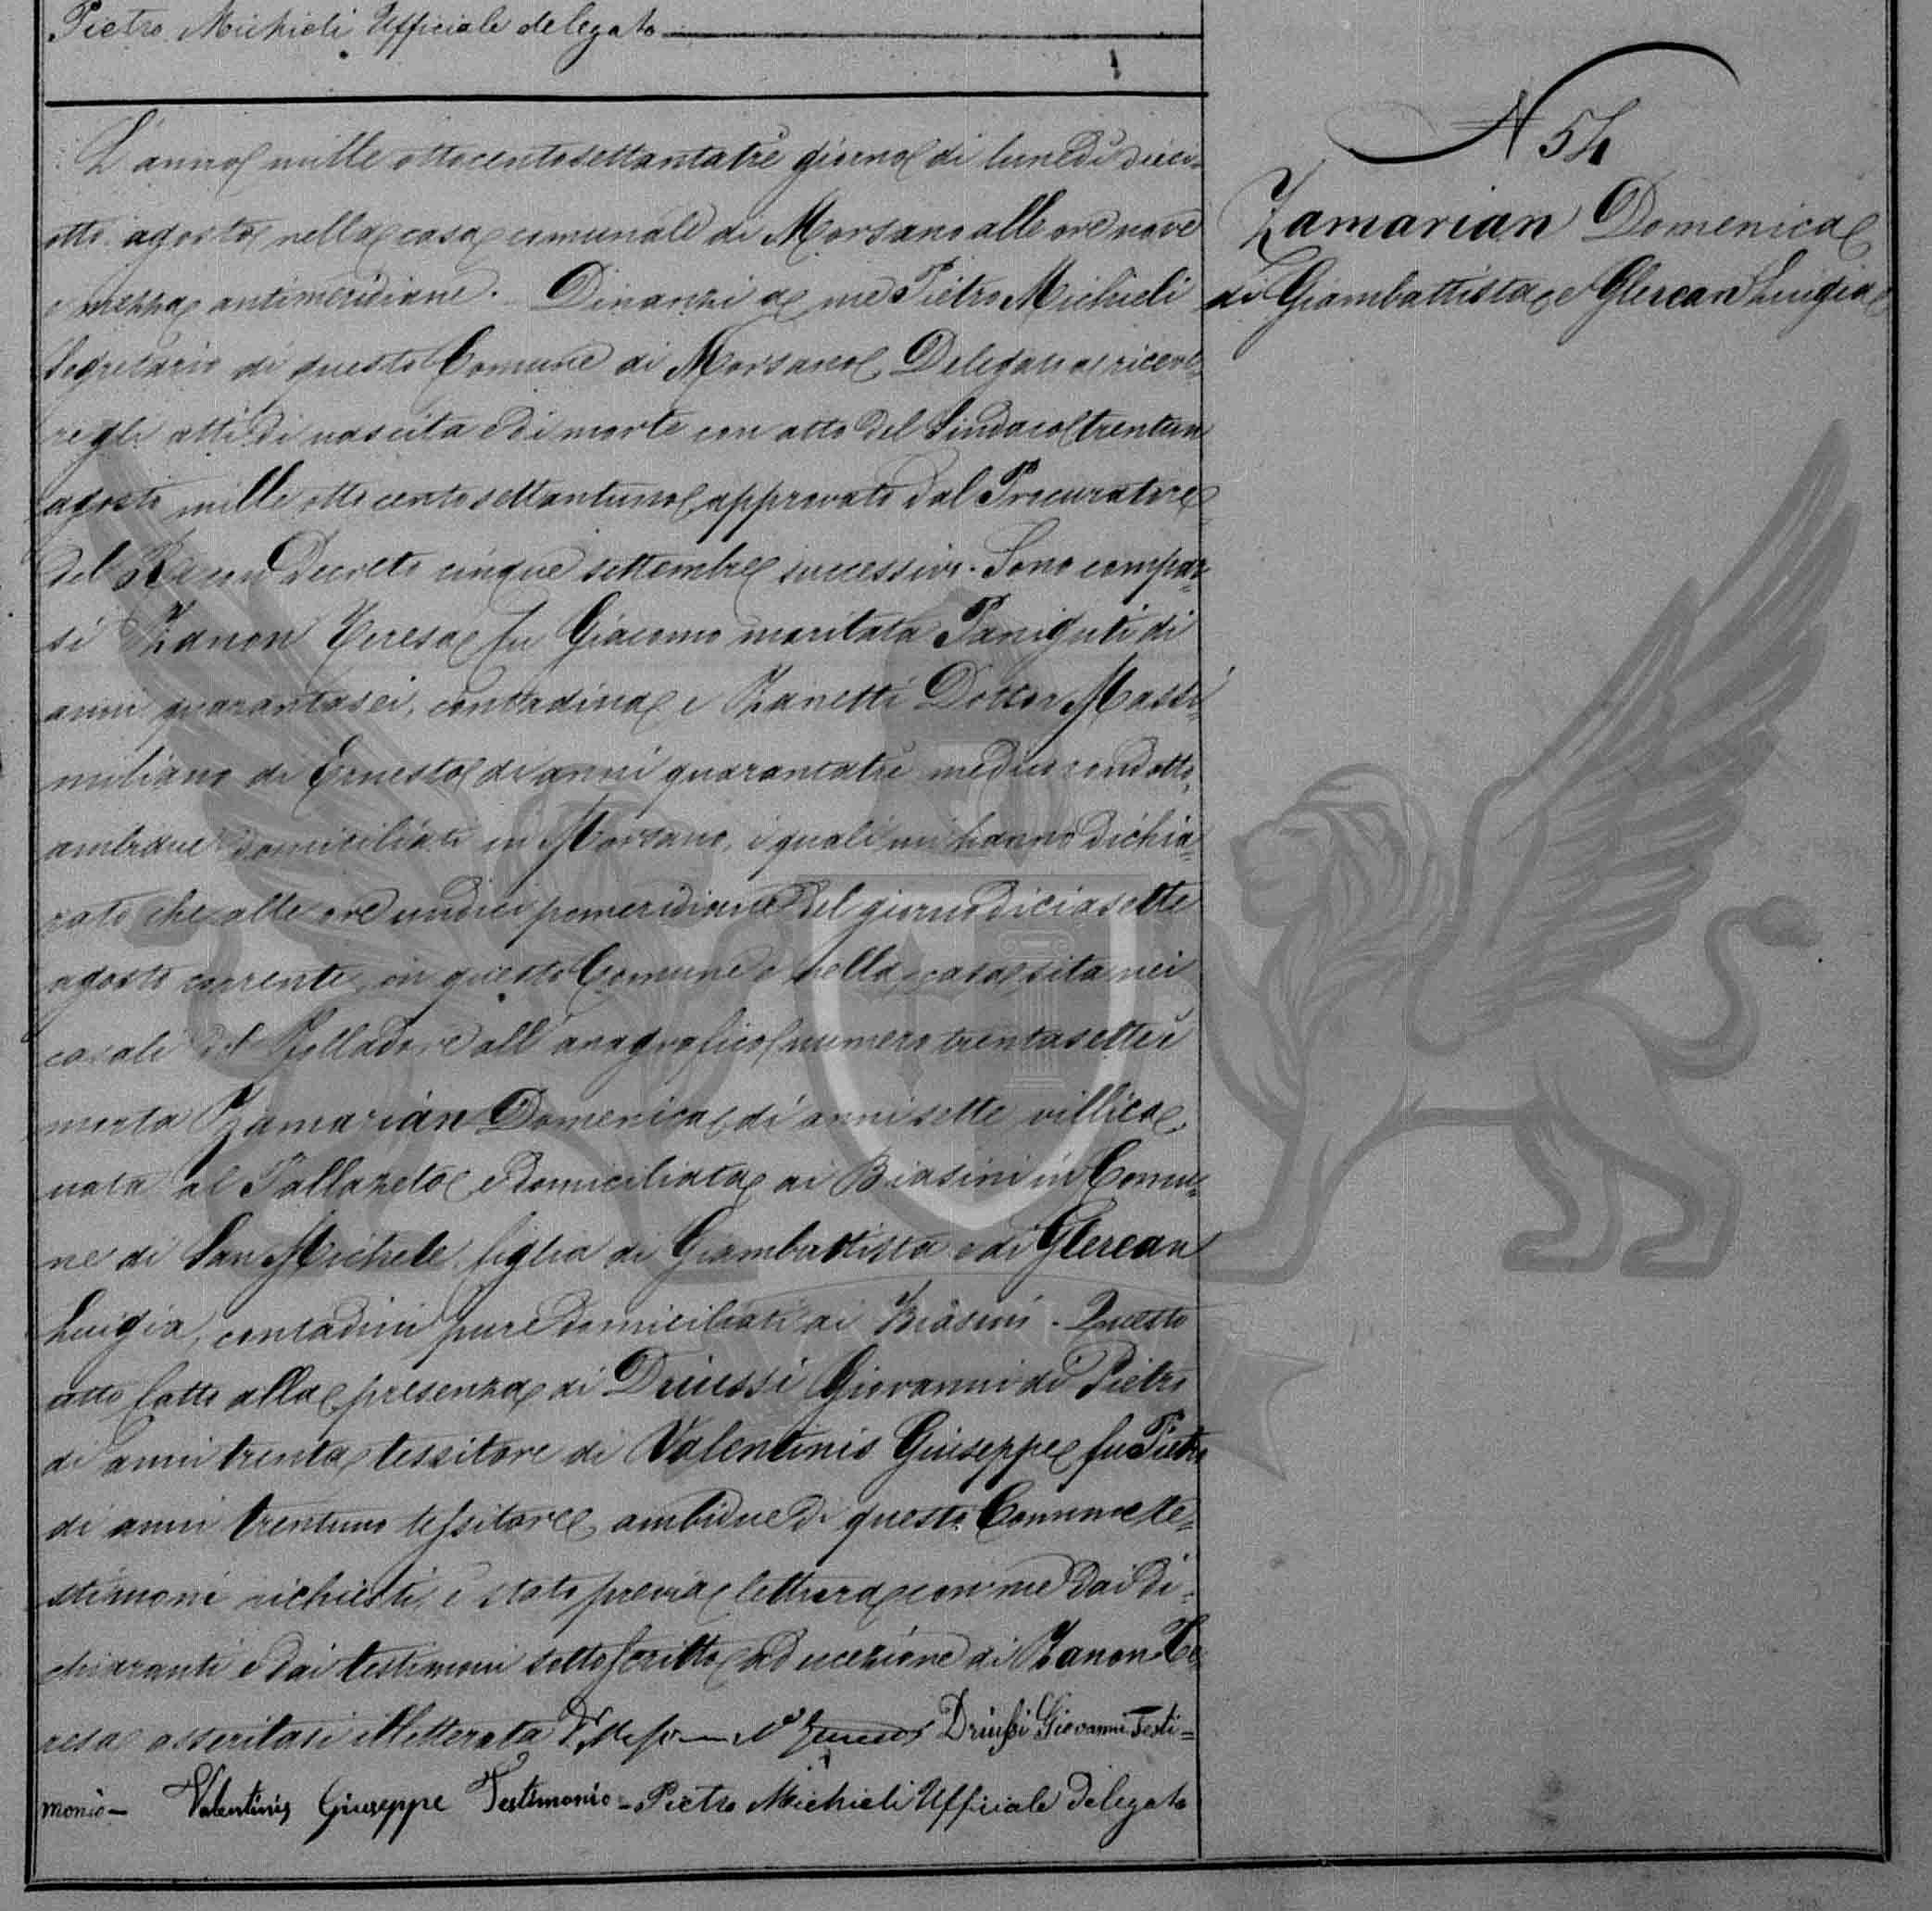 Pietro Michieli Ufficiale delegato
L'anno mille ottocentosettantatrè giorno di lunedì dieci-
otto agosto nella casa comunale di Morsano alle ore nove
e mezza antimeridiane. Dinanzi a me Pietro Michieli
Segretario di questo Comune di Morsano Delegato a riceve-
re gli atti di nascita e di morte con atto del Sindaco trentun
agosto mille ottocentosettantuno approvato dal Procuratore
del Re con Decreto cinque settembre successivo. Sono compar-
si Zanon Teresa fu Giacomo maritata Paniguti di
anni quarantasei, contadina e Zanetti Dottor Massi-
miliano di Ernesto di anni quarantatrè medico condotto,
ambidue domiciliati in Morsano, i quali mi hanno dichia-
rato che alle ore undici pomeridiane del giorno diciasette
agosto corrente, in questo Comune e nella casa sita nei
casali del all'anagrafico numero trentasette è
morta Zamarian Domenica di anni sette villica,
nata al e domiciliata ai Biasini in Comu-
ne di San Michele figlia di Giambattista e di Glerean
Luigia, contadini pure domiciliati ai Biasini. Questo
atto fatto alla presenza di Driussi Giovanni di Pietro
di anni trenta tessitore di Valentinis Giuseppe fu Pietro
di anni trentuno tessitore ambidue di questo Comune te-
stimoni richiesti, è stato previa lettura con me dai di-
chiaranti e dai testimoni sottoscritto ad eccezione di Zanon Te-
resa asseritasi illetterata Driussi Giovanni Testi=
monio - Valentinis Giuseppe Testimonio - Pietro Michieli Ufficiale delegato
N 54
Zamarian Domenica
di Giambattista e Glerean Luigia